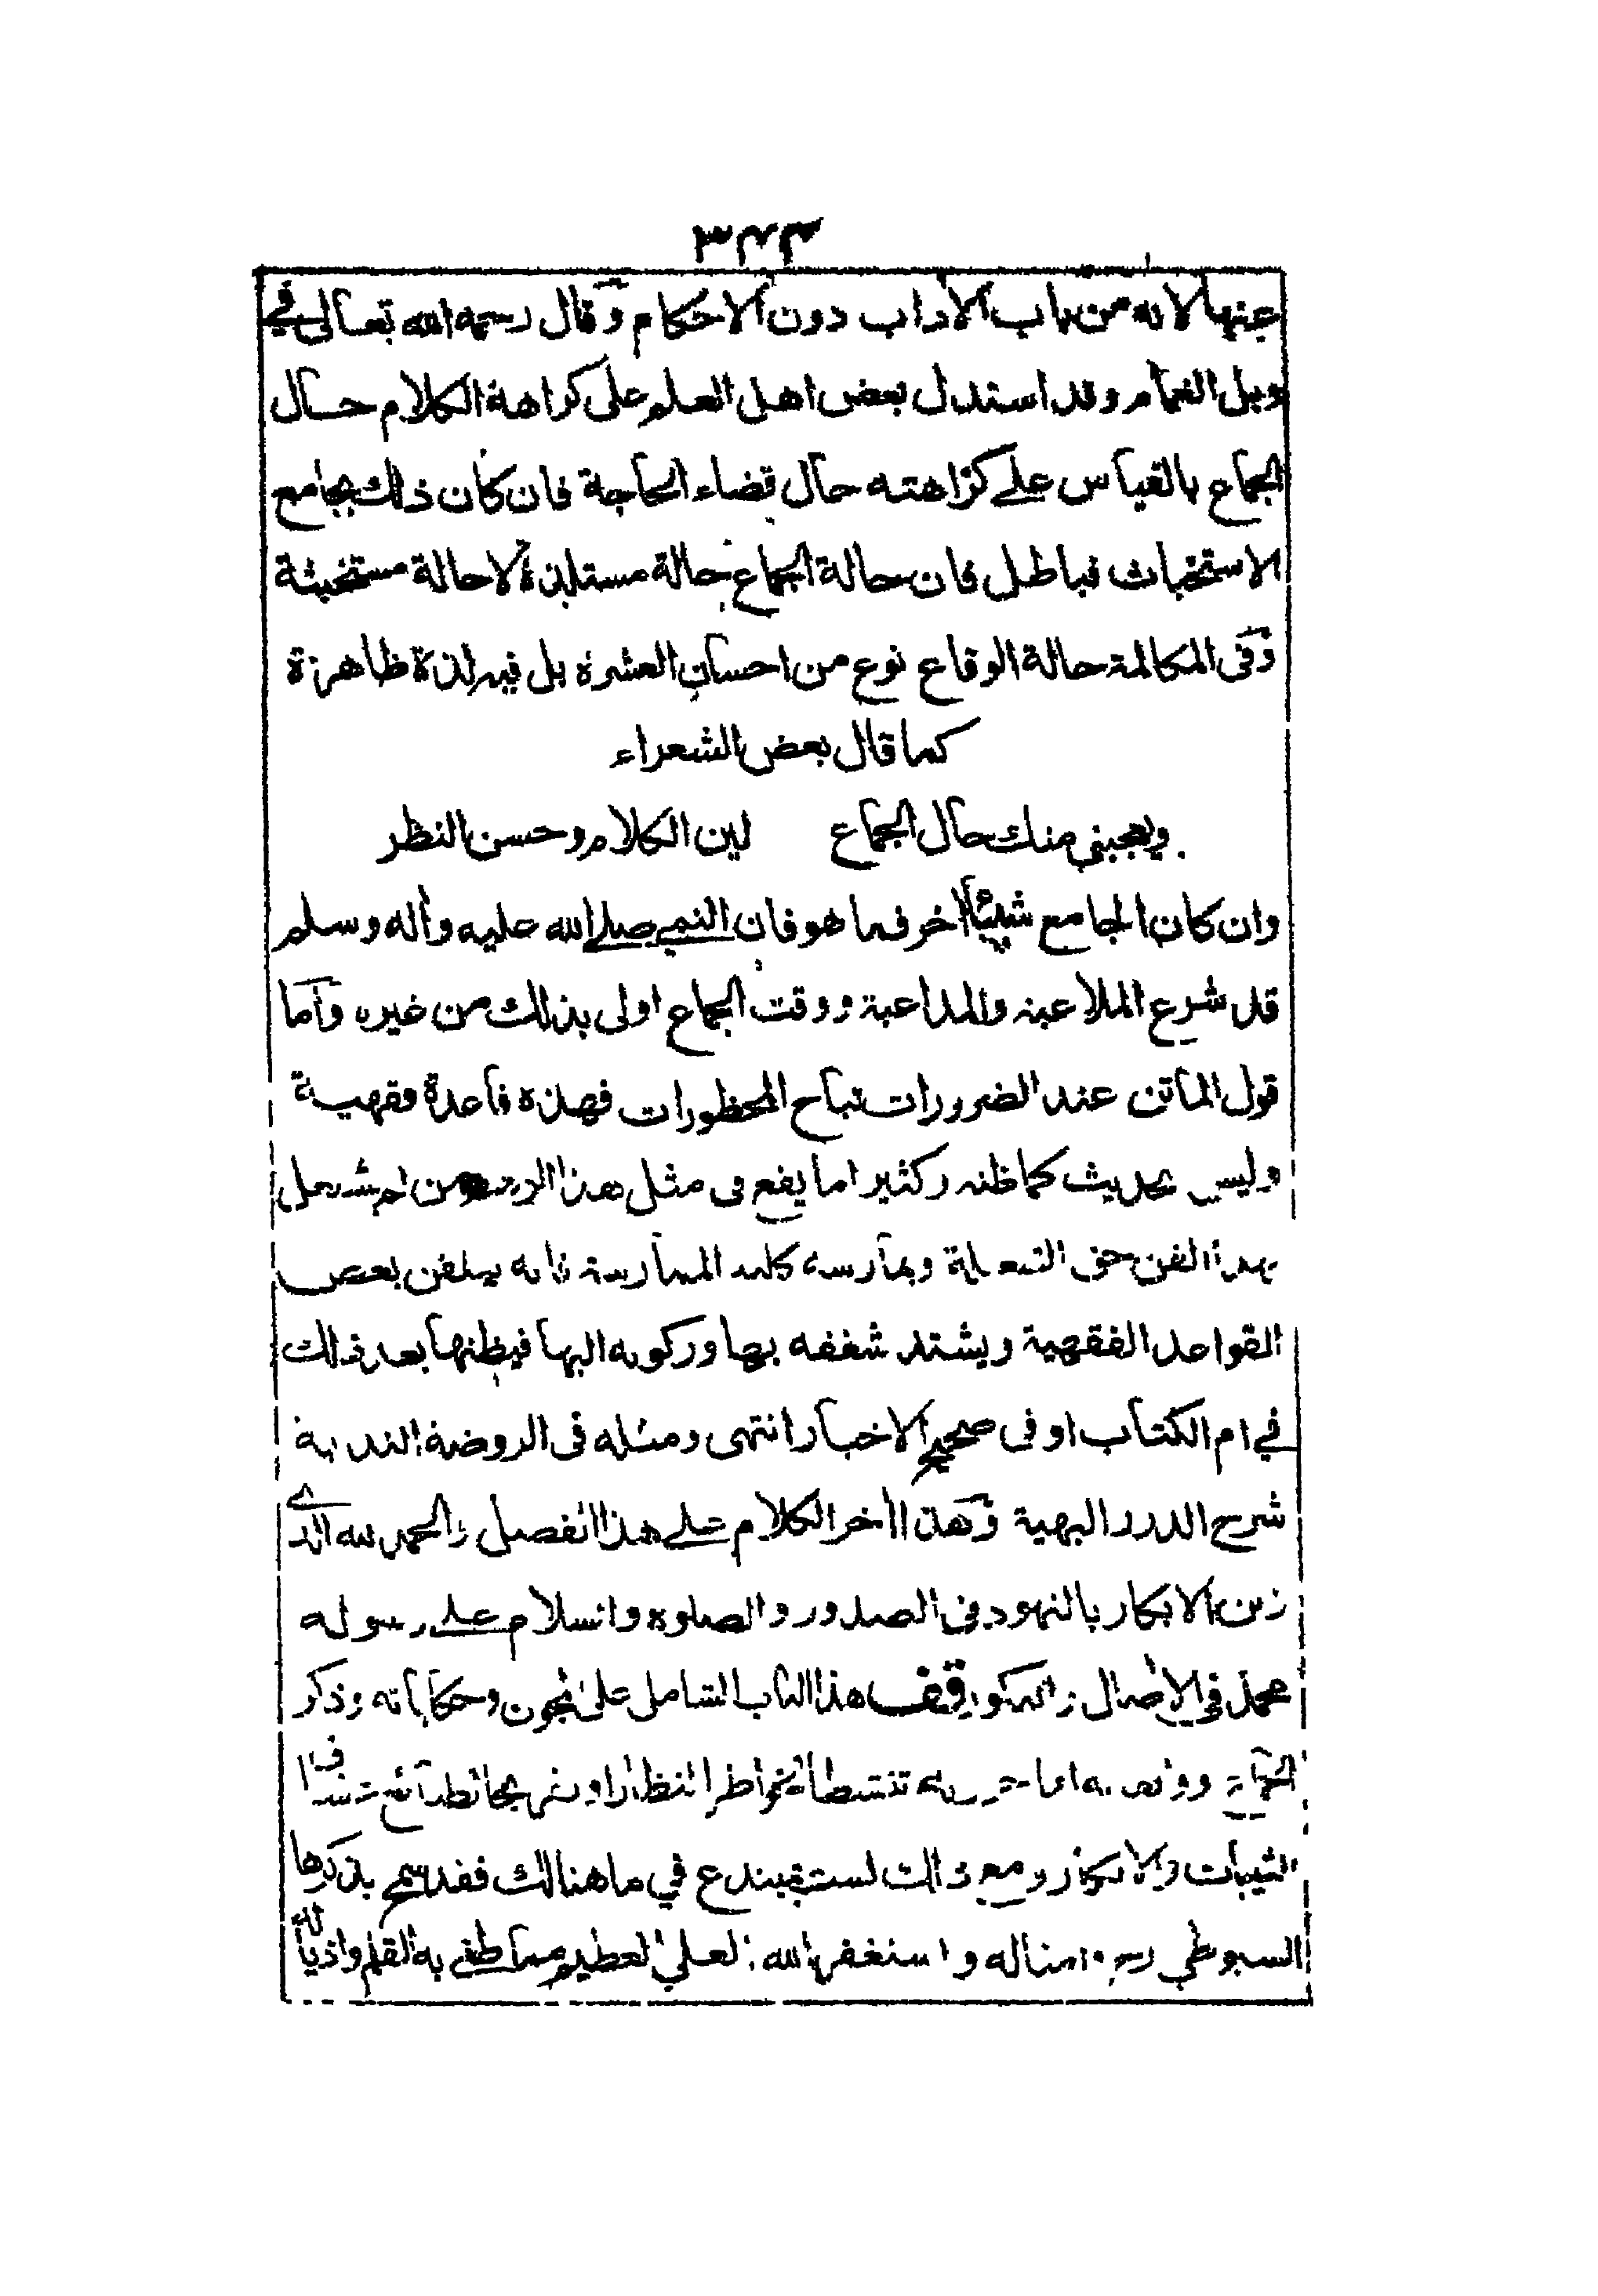 ٣٤٣
عنها لانه من باب الآداب دون الاحكام وقال رحمه الله تعالى في
وبل الغمام وقد استدل بعض اهل العلم على كراهة الكلام حال
الجماع بالقياس على كراهته حال قضاء الحاجة فان كان ذلك بجامع
الاستخباث فباطل فان حالة الجماع حالة مستلذة لا حالة مستخبثة
وفى المكالمة حالة الوقاع نوع من احسان العشرة بل فيه لذة ظاهرة
كما قال بعض الشعراء
ويعجبني منك حال الجماع لين الكلام وحسن النظر
وان كان الجامع شيئا آخر فما هو فان النبي صلى الله عليه وآله وسلم
قد شرع الملاعبة والمداعبة ووقت الجماع اولى بذلك من غيره وأما
قول الماتن عند الضرورات تباح المحظورات فهذه قاعدة فقهية
وليس بحديث كما ظنه وكثيرا ما يقع في مثل هذا من لم يشتغل
بهذا الفن حق وممارسه كلية الممارسة فانه يتلقن بعض
القواعد الفقهية ويشتد شغفه بها وركونه اليها فيظنها بعد ذلك
في ام الكتاب او فى صحيح الاخبار انتهى ومثله فى الروضة الندية
شرح الدرر البهية وهذا آخر الكلام على هذا الفصل والحمد لله الذي
زين الابكار بالنهود فى الصدور والصلوة والسلام على رسوله
محمد في الآصال والبكور قف هذا الباب الشامل على مجون وحكاياته وذكر
الجماع تنشيطا لخواطر النظار
الثيبات والابكار ومع ذلك لست بمبتدع في ما هنالك فقد سمح بذكرها
السيوطي وامثاله واستغفر الله العلي العظيم مما طغى به القلم واذيا له